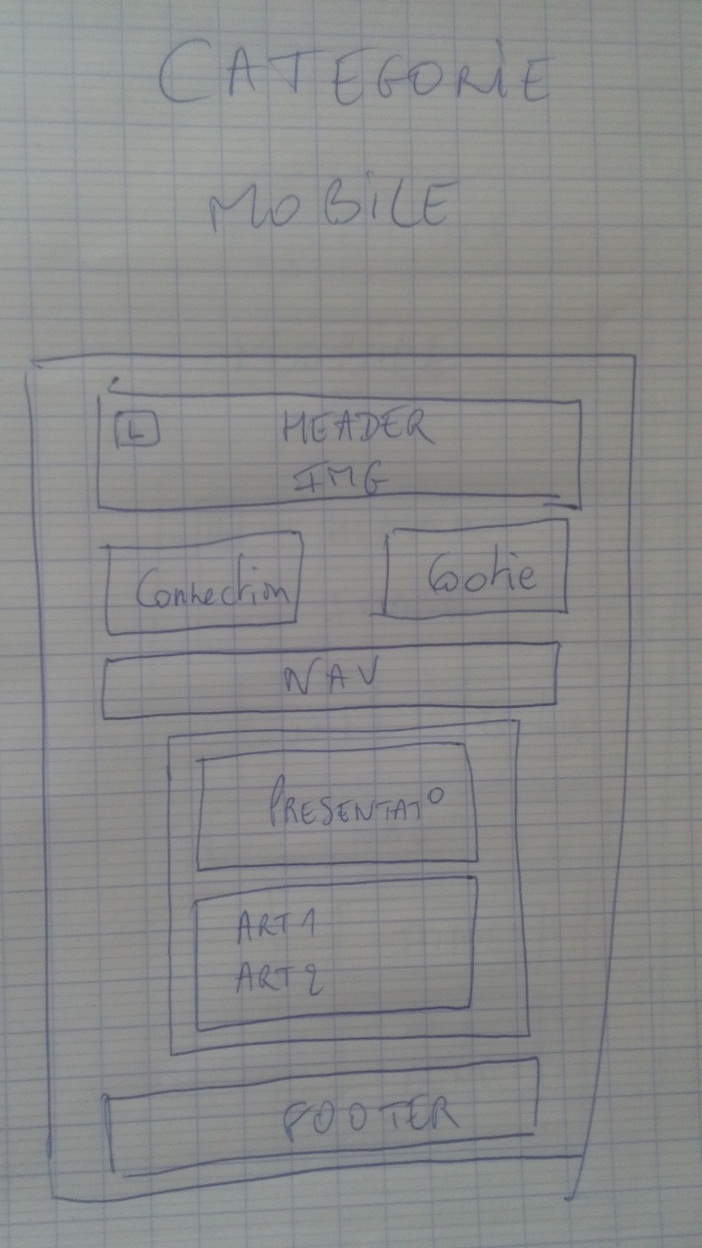 CATEGORIE
MOBILE
L
HEADER
IMG
Connection
Cookie
NAV
PRESENTAT°
ART 1
ART 2
FOOTER